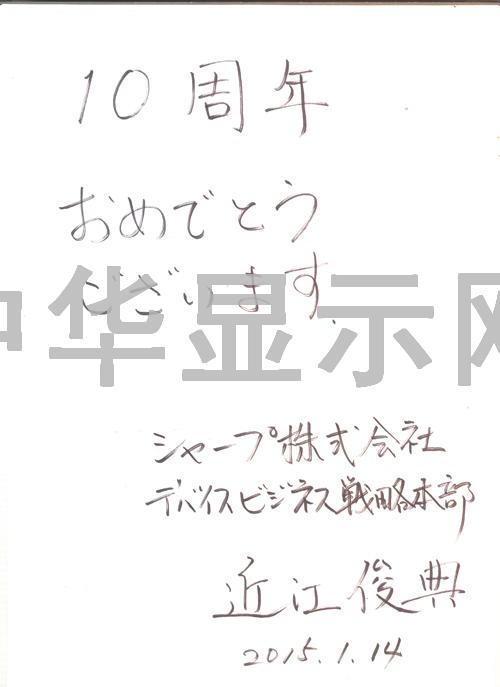 10周年
おめでとう
ございます.
中华显示网
シャープ株式会社
デバイスビジネス戦略本部
近江俊典
2015.1.14